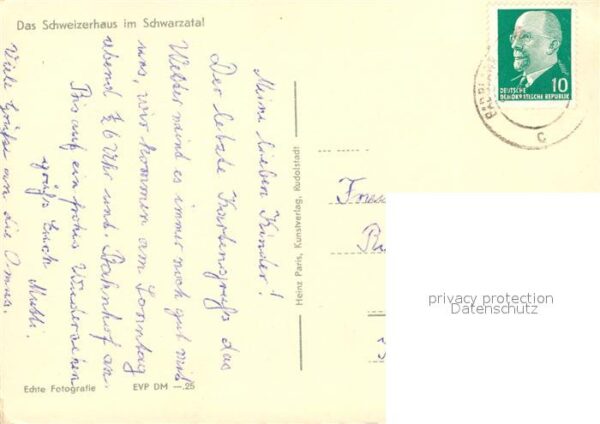 Das Schweizerhaus im Schwarzatal
Meine lieben Kinder!
Der letzte Kartengruß, das
Wetter meint es immer noch gut mit
uns, wir kommen am Sonntag
abend ½6 Uhr unt. Bahnhof an.
Bis auf ein frohes Wiedersehen
grüßt Euch Mutti.
Viele Grüße an die Omas.
Echte Fotografie
EVP DM —.25
Heinz Paris, Kunstverlag, Rudolstadt
10
DEUTSCHE
DEMOKRATISCHE REPUBLIK
C
privacy protection
Datenschutz